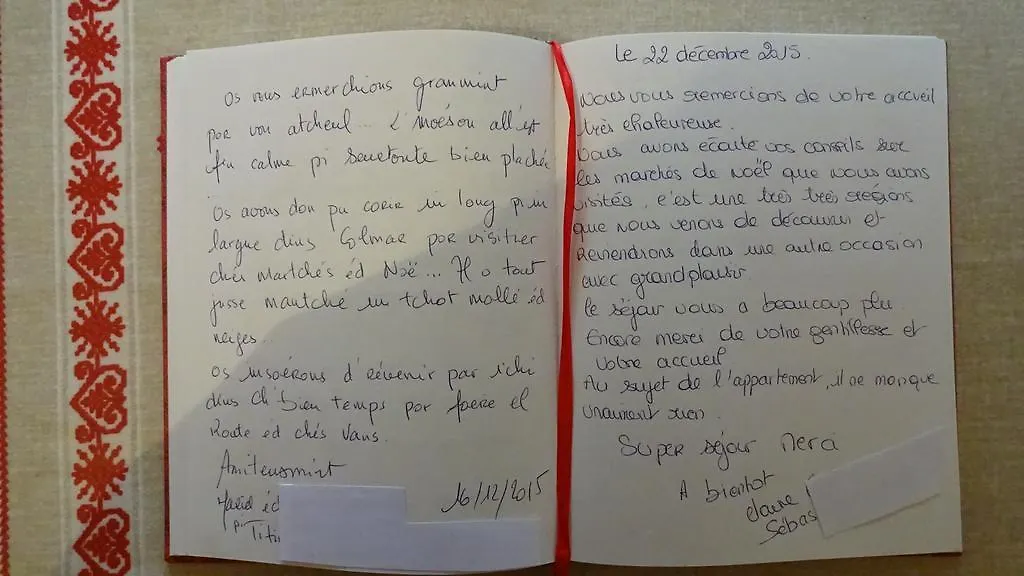 Os vous ermerchions granmint
por vou atcheul... L'moéson all ést
fin calme pi seurtoute bien plachée
Os avons don pu corir in long pi in
largue dins Colmar por visitier
chés martchés éd Noë... Il o tout
jusse mantché in tchot mollé éd
neiges..
Os inspérons d'révenir par ichi
dins ch'bien temps por foere el
Route ed chés Vans.
Amiteusmint
éd
pi Titi
16/12/2015
Le 22 décembre 2015.
Nous vous remercions de votre accueil
très chaleureuse.
Nous avons écouté vos conseils sur
les marchés de Noël que nous avons
visités, c'est une très très régions
que nous venons de découvrir et
Reviendrons dans une autre occasion
avec grand plaisir.
Le séjour nous a beaucoup plu.
Encore merci de votre gentillesse et
votre accueil
Au sujet de l'appartement, il ne manque
vraiment rien.
Super séjour Merci
A bientot
Sébas